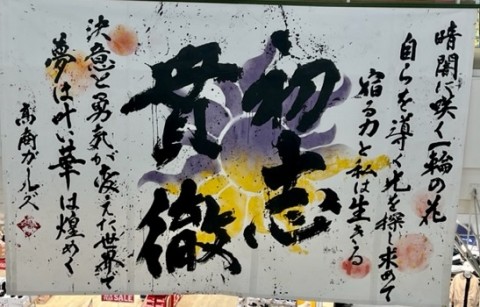 暗闇に咲く一輪の花
自らを導く光を探し求めて
宿る力と私は生きる
初志
貫徹
決意と勇気が変えた世界で
夢は叶い華は煌めく
高商ガールズ
SALE